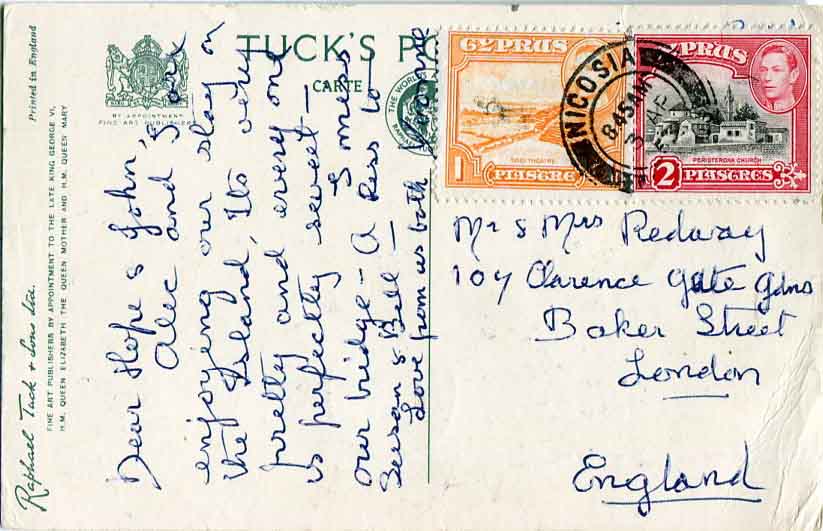 Printed in England
BY APPOINTMENT
FINE ART PUBLISHERS
TUCK'S PO
CARTE
THE WORLD
Raphael Tuck & Sons Ltd.
FINE ART PUBLISHERS BY APPOINTMENT TO THE LATE KING GEORGE VI,
H.M. QUEEN ELIZABETH THE QUEEN MOTHER AND H.M. QUEEN MARY
Dear Hope & John,
Alec and I are
enjoying our stay on
the Island, Its very
pretty and every one
is perfectly sweet —
I miss
our bridge — A Kiss to
Susan & Bell —
Love from us both
CYPRUS
1
PIASTRE
SOLI THEATRE
NICOSIA
8.45 AM
3 AP
CYPRUS
PERISTERONA CHURCH
2 PIASTRES
Mr & Mrs Redway
107 Clarence Gate Gdns
Baker Street
London
England